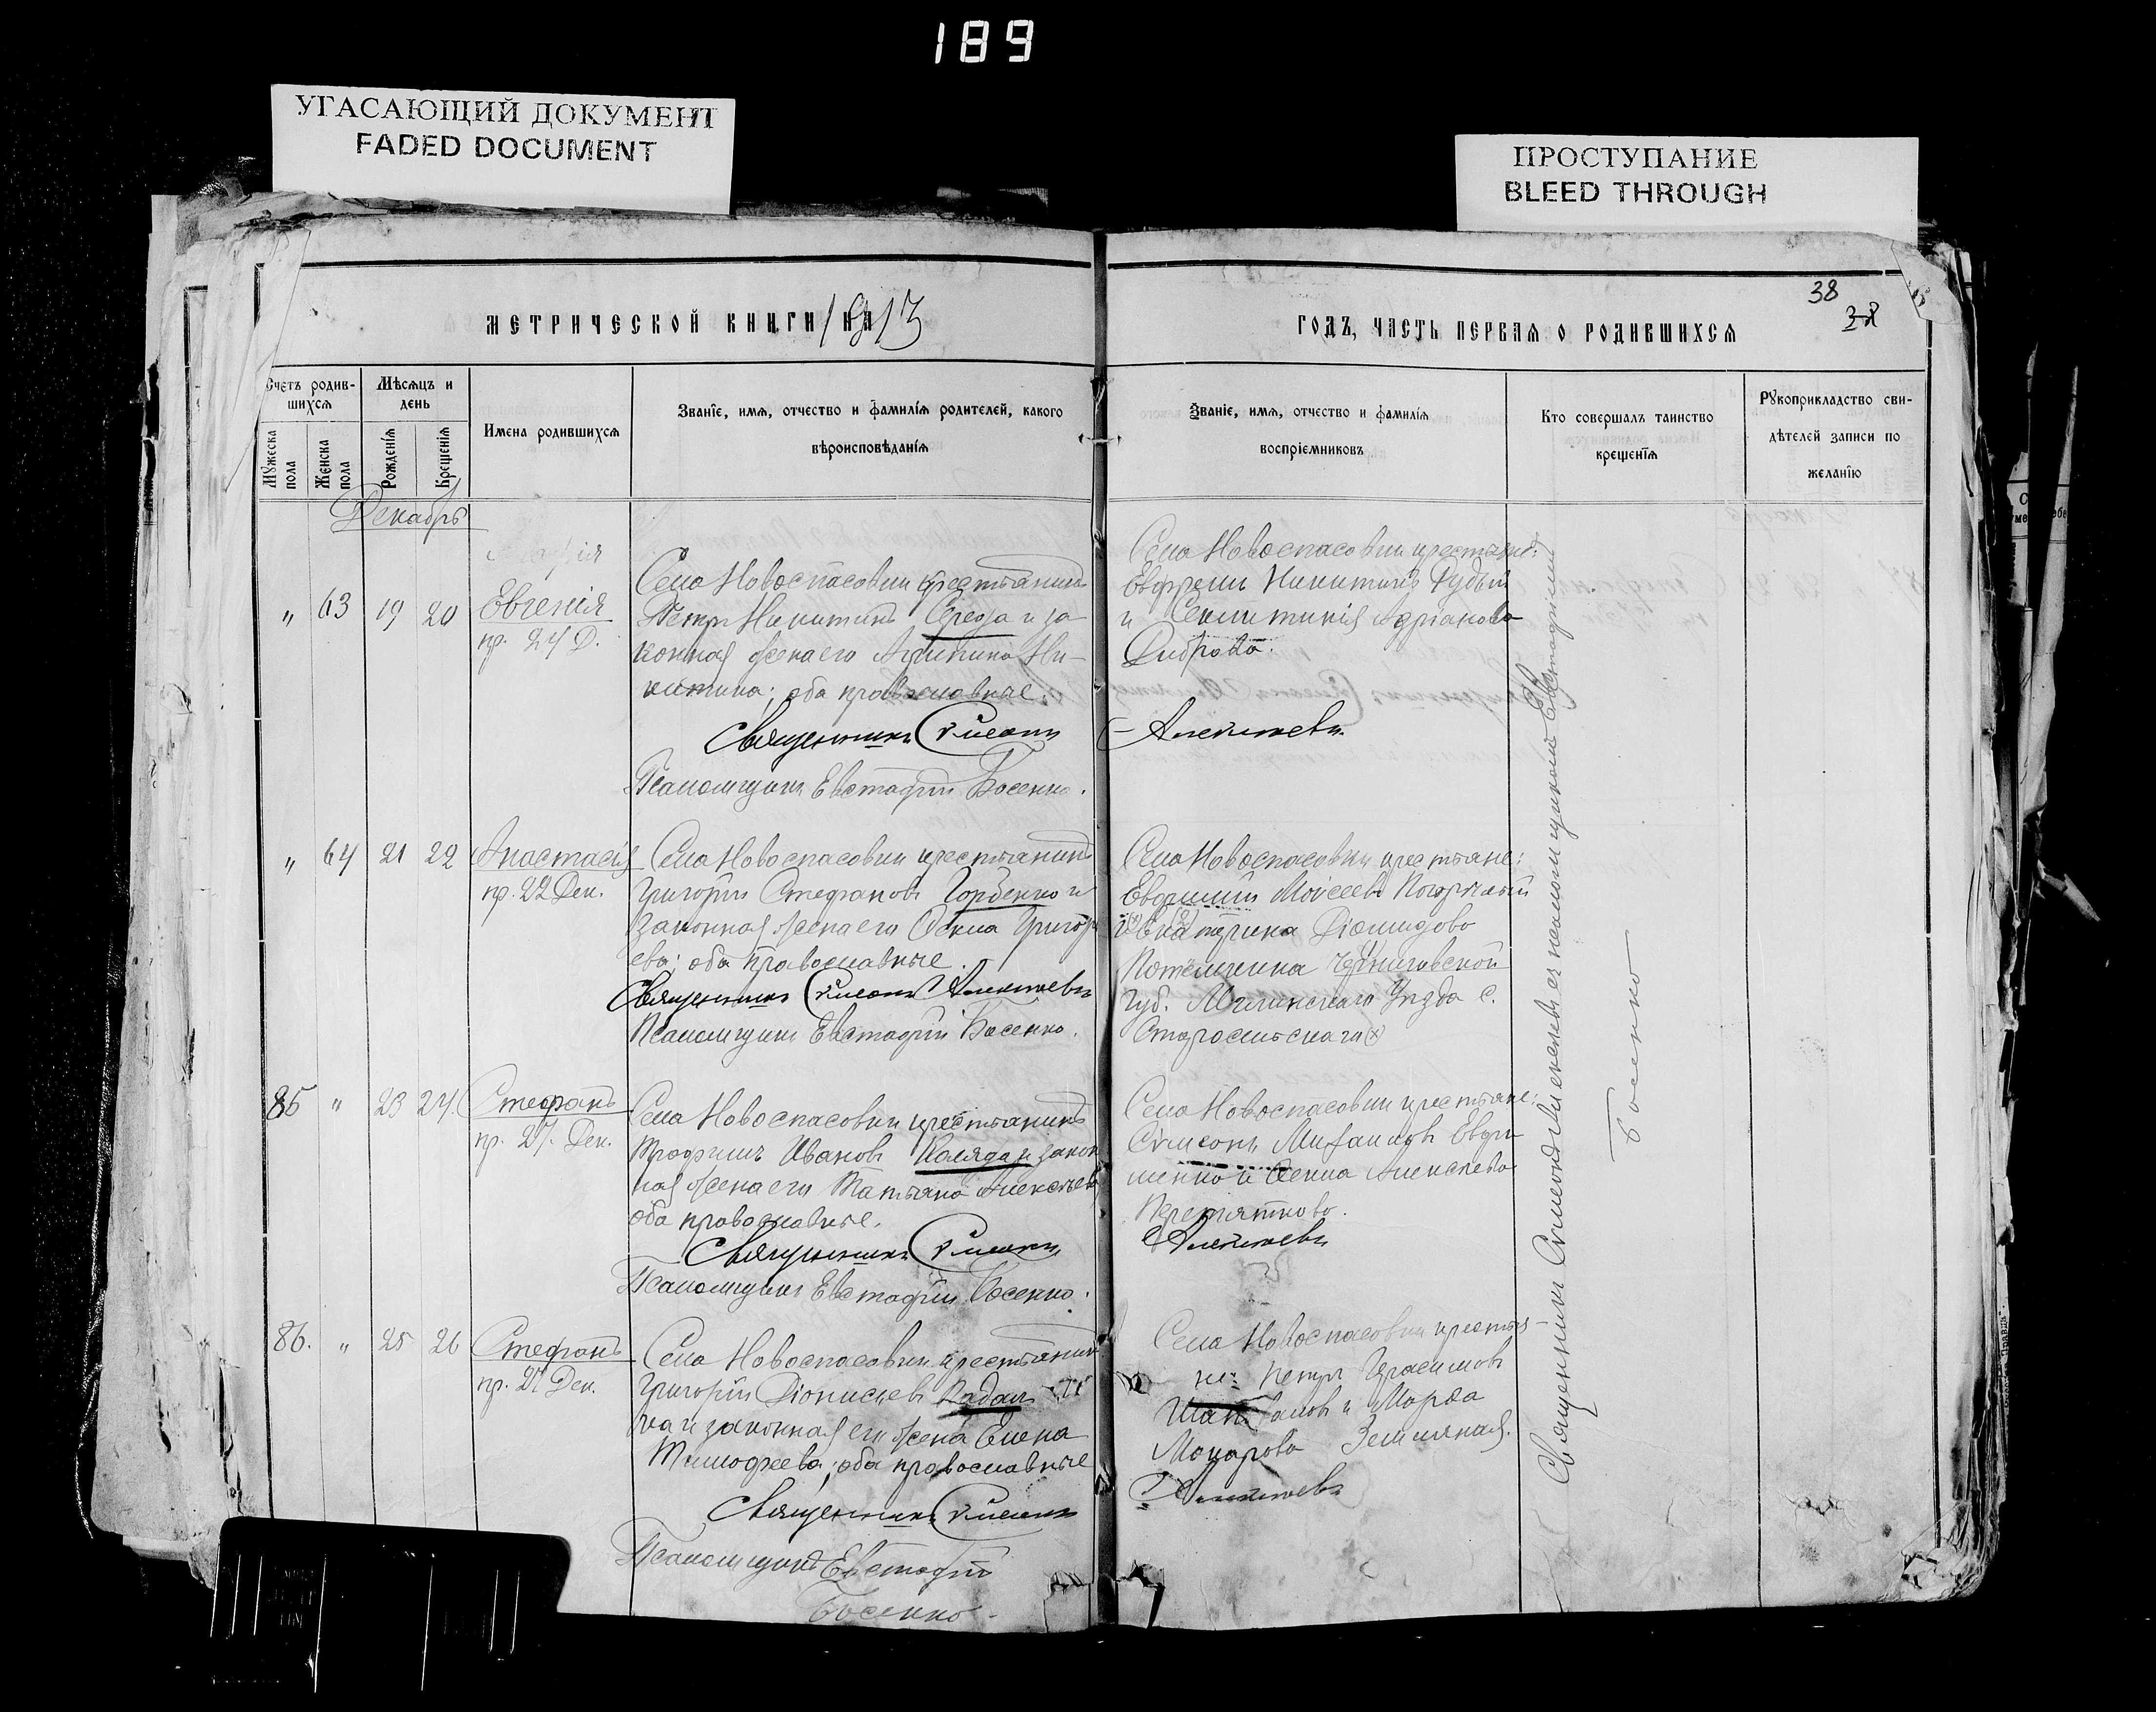 189
УГАСАЮЩИЙ ДОКУМЕНТ
FADED DOCUMENT
ПРОСТУПАНИЕ
BLEED THROUGH
38
МЕТРИЧЕСКОЙ КНИГИ НА 1913
ГОДЪ, ЧАСТЬ ПЕРВАЯ О РОДИВШИХСЯ
Счетъ родив-
шихся
Мѣсяцъ и
день
Мужеска
пола
Женска
пола
Рожденїя
Крещенїя
Имена родившихся
Званїе, имя, отчество и фамилїя родителей, какого
вѣроисповѣданїя
Званїе, имя, отчество и фамилїя
воспрїемниковъ
Кто совершалъ таинство
крещенїя
Рукоприкладство сви-
дѣтелей записи по
желанїю
Декабрь
" 63 19 20 Евгенія
пр. 24 Д.
Села Новоспасовки крестьянинъ
Петръ Никитинъ Середа и за
конная жена его Акилина Ни-
китина; оба православные.
Священникъ Симеонъ
Псаломщикъ Евстафій Босенко.
Села Новоспасовки крестьяне:
Евфремъ Никитинъ Рудый
и Адріанова
Диброва.
Алексеевъ
" 64 21 22 Анастасія
пр. 22 Дек.
Села Новоспасовки крестьянинъ
Григорій Стефановъ Горбенко и
законная жена его Фекла Григорь
ева; оба православные.
Священникъ Симеонъ Алексеевъ
Псаломщикъ Евстафій Босенко.
Села Новоспасовки крестьяне:
Евфимій Моисеевъ
Екатерина Діомидова
Потемкина Черниговской
губ. Мглинскаго Уѣзда с.
85 " 23 24 Стефанъ
пр. 27. Дек.
Села Новоспасовки крестьянинъ
Трофимъ Ивановъ Коляда и закон
ная жена его Татьяна Алексѣева
оба православные.
Священникъ Симеонъ
Псаломщикъ Евстафій Босенко.
Села Новоспасовки крестьяне:
Симеонъ Михаиловъ Ефи
менко и Фекла Алексѣева
Перепяткова.
Алексеевъ
86. " 25 26 Стефанъ
пр. 27 Дек.
Села Новоспасовки крестьянинъ
Григорій Діонисіевъ
ка и законная его жена Елена
Тимофеева; оба православные
Священникъ Симеонъ
Псаломщикъ Евстафій
Босенко.
Села Новоспасовки крестья-
не: Петръ Герасимовъ
и Марфа
Макарова Земляная.
Алексеевъ
Священникъ Симеонъ Алексеевъ съ псаломщикомъ Евстафіемъ
Босенко